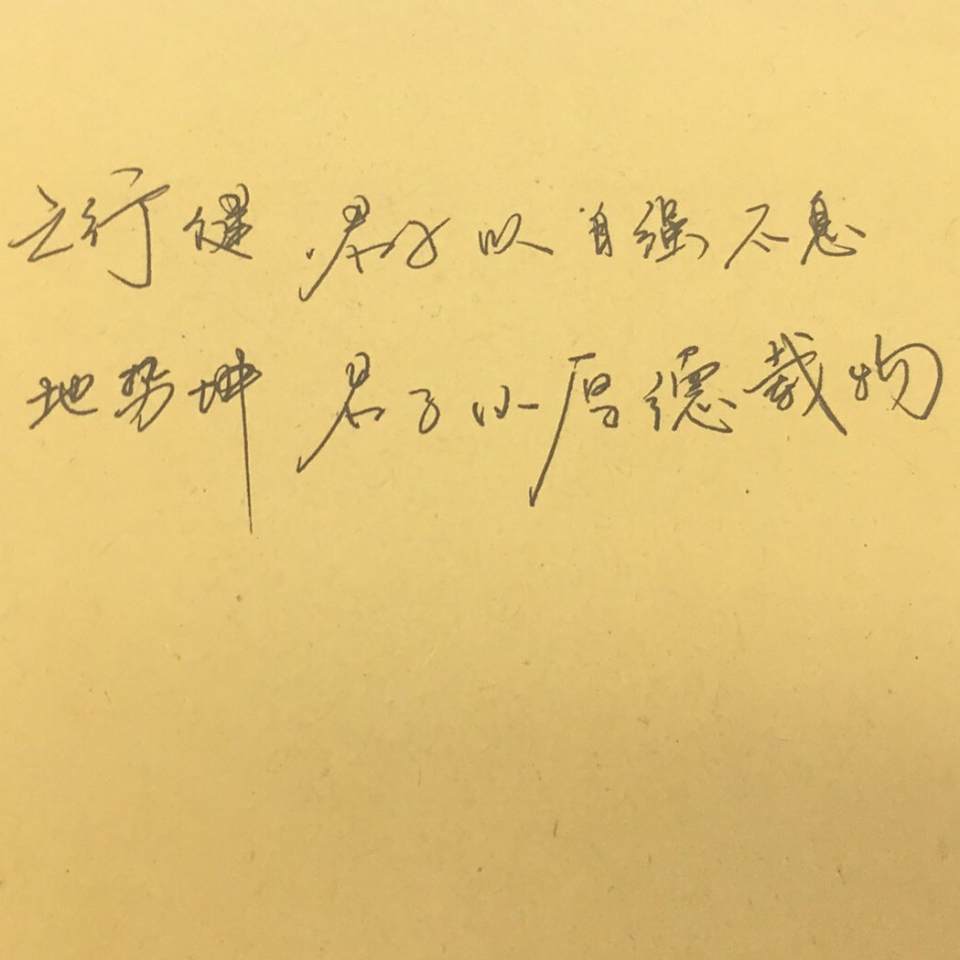 天行健 君子以自强不息
地势坤 君子以厚德载物